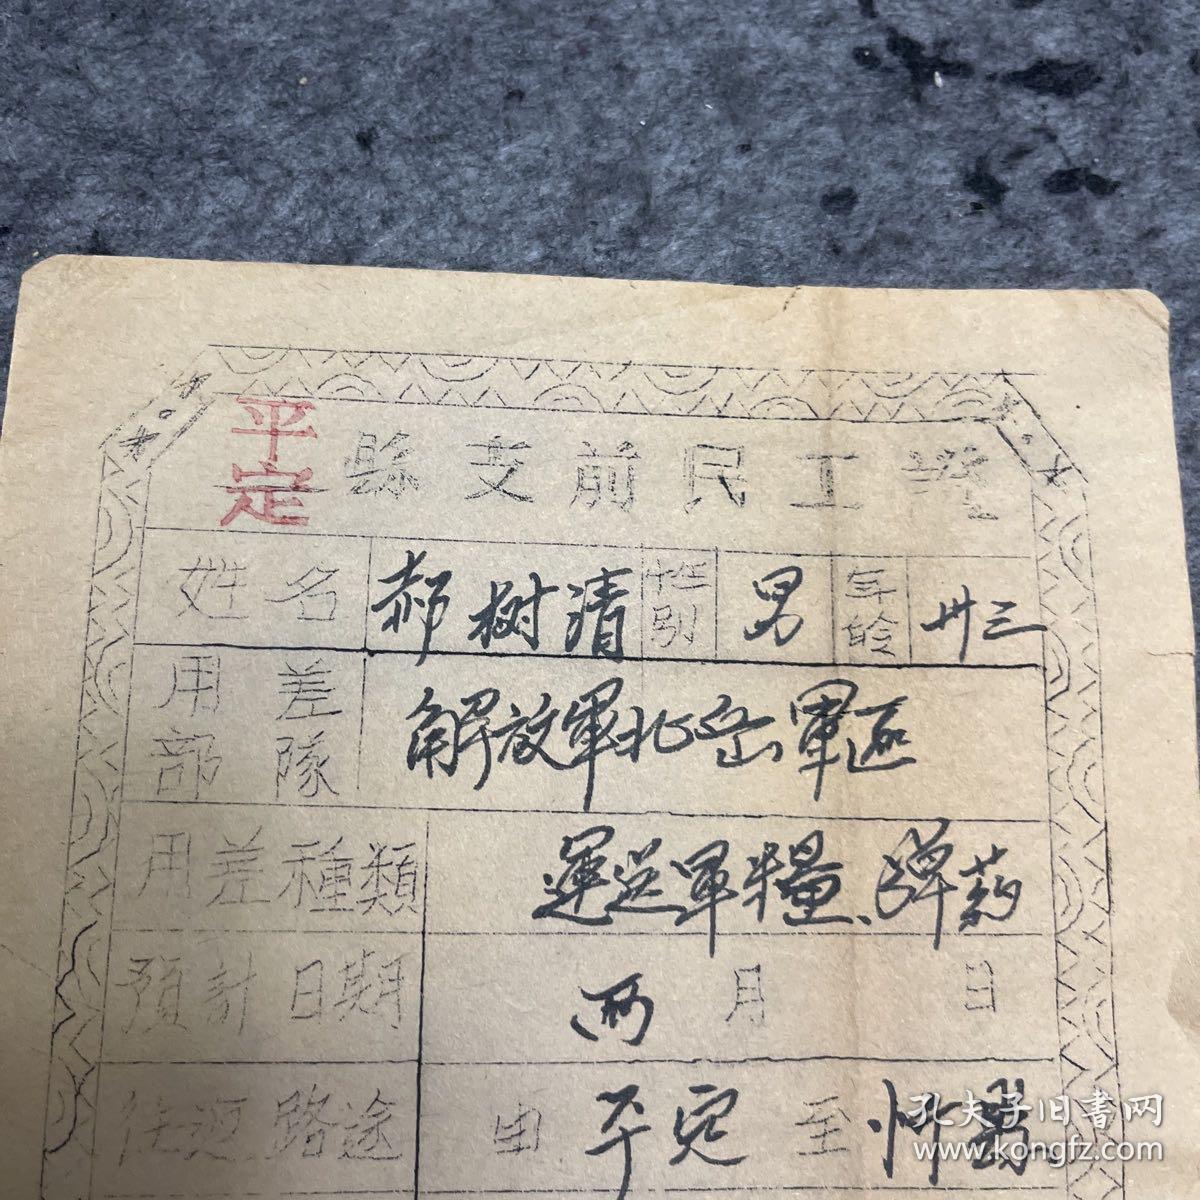 平定縣支前民工證
姓名 郝树清 性别 男 年龄 卅三
用差部隊 解放軍北岳軍區
用差種類 運送軍糧、弹药
預計日期 两月 日
往返路途 由平定至忻縣
孔夫子旧书网
www.kongfz.com